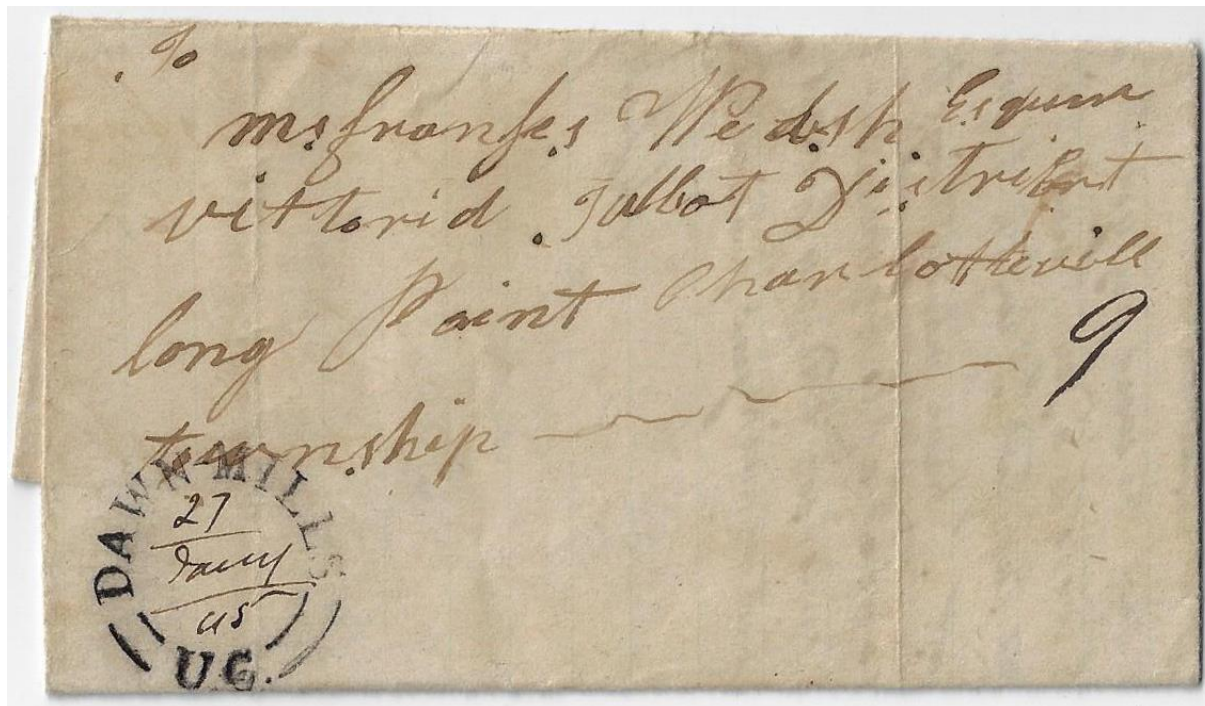 To
ms franses Welsh Esquir
vittorid Talbot District
long Point Charlottevill
township
9
DAWN MILLS
27
Jany
45
U.C.